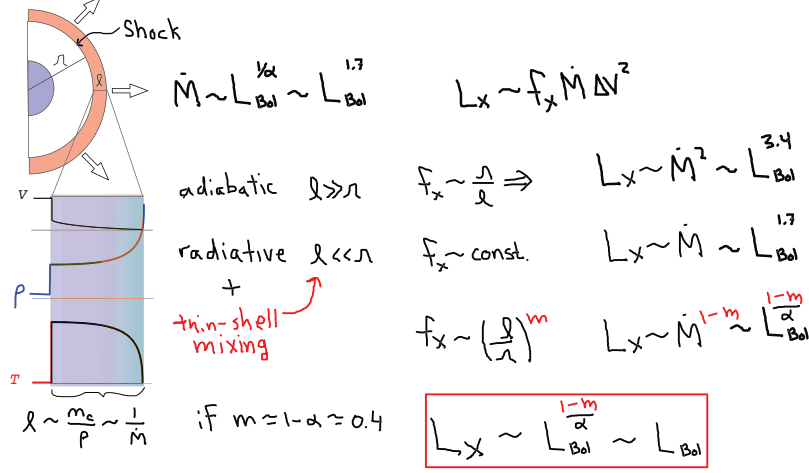 Shock
r
l
Ṁ ~ L_Bol^{1/α} ~ L_Bol^{1.7}
L_x ~ f_x Ṁ ΔV²
adiabatic l >> r
f_x ~ r/l ⇒
L_x ~ Ṁ² ~ L_Bol^{3.4}
V
radiative l << r
f_x ~ const.
L_x ~ Ṁ ~ L_Bol^{1.7}
+
ρ
thin-shell
mixing
f_x ~ (l/r)^m
L_x ~ Ṁ^{1-m} ~ L_Bol^{(1-m)/α}
T
l ~ m_c/ρ ~ 1/Ṁ
if m ≃ 1-α ≃ 0.4
L_x ~ L_Bol^{(1-m)/α} ~ L_Bol